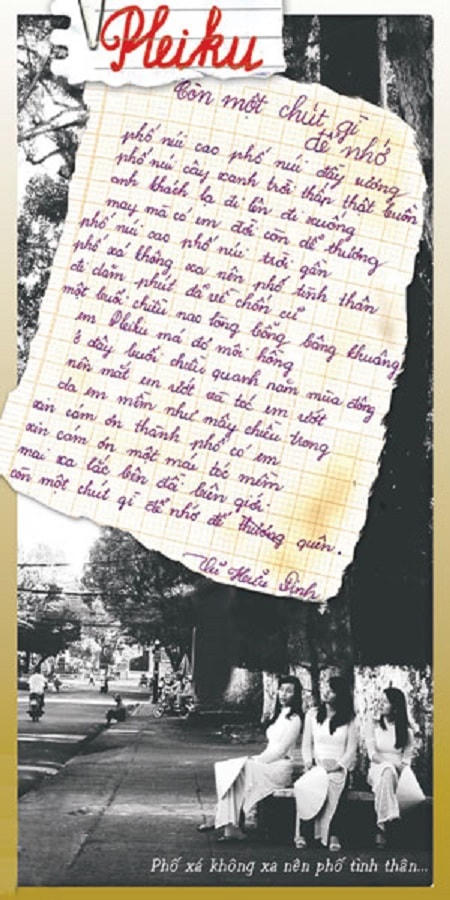 Pleiku
Còn một chút gì
để nhớ
phố núi cao phố núi đầy sương
phố núi cây xanh trời thấp thật buồn
anh khách lạ đi lên đi xuống
may mà có em đời còn dễ thương
phố núi cao phố núi trời gần
phố xá không xa nên phố tình thân
đi dăm phút đã về chốn cũ
một buổi chiều nao lòng bỗng bâng khuâng
em Pleiku má đỏ môi hồng
ở đây buổi chiều quanh năm mùa đông
nên mắt em ướt và tóc em ướt
da em mềm như mây chiều trong
xin cám ơn thành phố có em
xin cám ơn một mái tóc mềm
mai xa lắc bên đồi biên giới
còn một chút gì để nhớ để thương quên.
Vũ Hữu Định
Phố xá không xa nên phố tình thân...